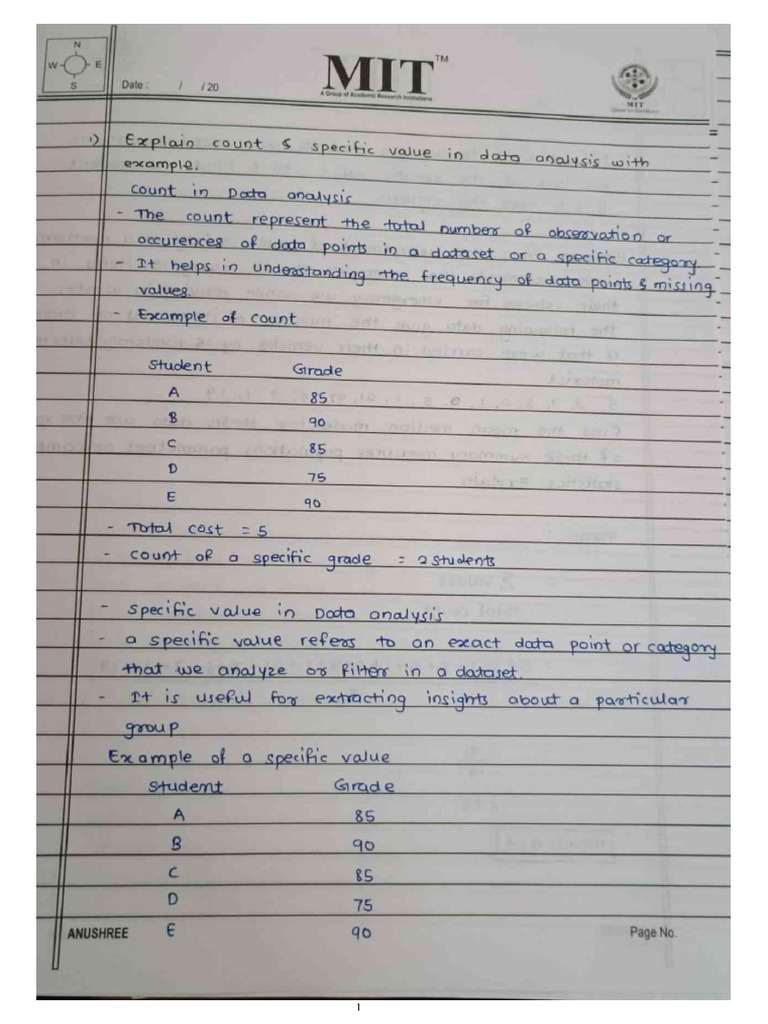 N
W E
S
Date : / / 20
MIT TM
A Group of Academic Research Institutions
MIT
1) Explain count & specific value in data analysis with
example.
count in Data analysis
- The count represent the total number of observation or
occurences of data points in a dataset or a specific category
- It helps in understanding the frequency of data points & missing
values.
- Example of count
Student Grade
A 85
B 90
C 85
D 75
E 90
- Total cost = 5
- count of a specific grade = 2 students
- specific value in Data analysis
- a specific value refers to an exact data point or category
that we analyze or filter in a dataset.
- It is useful for extracting insights about a particular
group
Example of a specific value
Student Grade
A 85
B 90
C 85
D 75
E 90
ANUSHREE Page No.
1